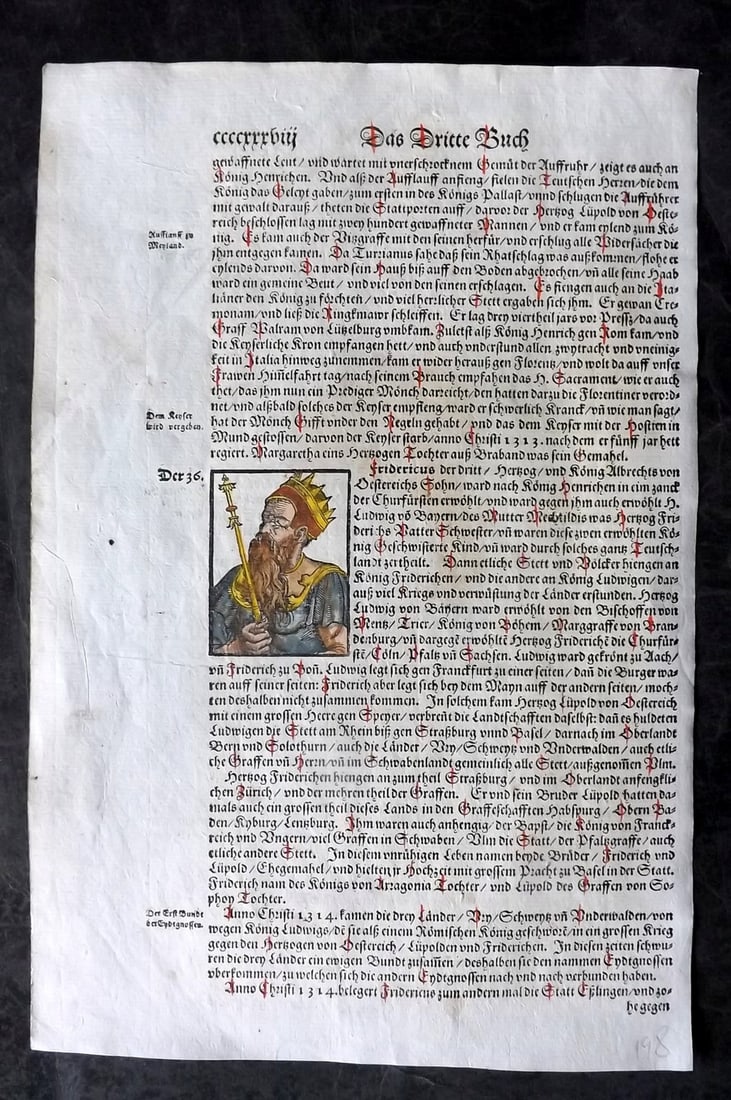 ccccxxxviij Das Dritte Buch
gewaffnete Leut / vnd wartet mit vnerschrocknem Gemüt der Auffruhr / zeigt es auch an
König Henrichen. Vnd alß der Aufflauff anfieng / fielen die Teutschen Herren / die dem
König das Geleyt gaben / zum ersten in des Königs Pallast / vnnd schlugen die Auffrührer
mit gewalt darauß / theten die Stattporten auff / darvor der Hertzog Lüpold von Oeste-
reich beschlossen lag mit zwey hundert gewaffneter Mannen / vnd er kam eylend zum Kö-
Aufflauff zu
Meyland.
nig. Es kam auch der Vitzgraffe mit den seinen herfür / vnd erschlug alle Widersächer die
jhm entgegen kamen. Da Turzianus sahe daß sein Rhatschlag was außkommen / flohe er
eylends darvon. Da ward sein Hauß biß auff den Boden abgebrochen / vñ alle seine Haab
ward ein gemeine Beut / vnd viel von den seinen erschlagen. Es fiengen auch an die Ita-
lianer den König zu förchten / vnd viel herrlicher Stett ergaben sich jhm. Er gewan Cre-
monam / vnd ließ die Ringkmawr schleiffen. Er lag drey viertheil jars vor Pressz / da auch
Graff Walram von Lützelburg vmbkam. Zuletst alß König Henrich gen Rom kam / vnd
die Keyserliche Kron empfangen hett / vnd auch vnderstund allen zwytracht vnd vneinig-
keit in Italia hinweg zunemmen / kam er wider herauß gen Florentz / vnd wolt da auff vnser
Frawen Him̃elfahrt tag / nach seinem Brauch empfahen das H. Sacrament / wie er auch
thet / das jhm nun ein Prediger Mönch darreicht / den hatten darzu die Florentiner verord-
net / vnd alßbald solches der Keyser empfieng / ward er schwerlich Kranck / vñ wie man sagt /
Dem Keyser
wird vergeben.
hat der Mönch Gifft vnder den Negeln gehabt / vnd das dem Keyser mit der Hostien in
Mund gestossen / darvon der Keyser starb / anno Christi 1313. nach dem er fünff jar hett
regiert. Margaretha eins Hertzogen Tochter auß Braband was sein Gemahel.
Der 36.
Fridericus der dritt / Hertzog / vnd König Albrechts von
Oesterreichs Sohn / ward nach König Henrichen in eim zanck
der Churfürsten erwöhlt / vnd ward gegen jhm auch erwöhlt H.
Ludwig vö Bayern / des Mutter Mechtildis was Hertzog Fri-
derichs Vatter Schwester / vñ waren diese zwen erwöhlten Kö-
nig Geschwisterte Kind / vñ ward durch solches gantz Teutsch-
landt zertheilt. Dann etliche Stett vnd Völcker hiengen an
König Friderichen / vnd die andern an König Ludwigen / dar-
auß viel Kriegs vnd verwüstung der Länder erstunden. Hertzog
Ludwig von Bayern ward erwöhlt von den Bischoffen von
Mentz / Trier / König von Böhem / Marggraffe von Bran-
denburg / vñ dargegẽ erwöhltẽ Hertzog Friderichẽ die Churfür-
stẽ / Cöln / Pfaltz vñ Sachsen. Ludwig ward gekrönt zu Aach /
vñ Friderich zu Boñ. Ludwig legt sich gen Franckfurt zu einer seiten / dañ die Burger wa-
ren auff seiner seiten: Friderich aber legt sich bey dem Mayn auff der andern seiten / moch-
ten deshalben nicht zusammen kommen. In solchem kam Hertzog Lüpold von Oesterreich
mit einem grossen Heere gen Speyer / verbreñt die Landschafften daselbst: dañ es huldeten
Ludwigen die Stett am Rhein biß gen Straßburg vnnd Basel / darnach im Oberlandt
Bern vnd Solothurn / auch die Länder / Vry / Schweytz vnd Vnderwalden / auch etli-
che Graffen vñ Herrn / vñ im Schwabenlandt gemeinlich alle Stett / außgenom̃en Vlm.
Hertzog Friderichen hiengen an zum theil Straßburg / vnd im Oberlandt anfengkli-
chen Zürich / vnd der mehren theil der Graffen. Er vnd sein Bruder Lüpold hatten da-
mals auch ein grossen theil dieses Lands in den Graffeschafften Habspurg / Obern Ba-
den / Kyburg / Lentzburg. Ihm waren auch anhengig / der Bapst / die König von Franck-
reich vnd Vngern / viel Graffen in Schwaben / Vlm die Statt / der Pfaltzgraffe / auch
etliche andere Stett. In diesem vnrühigen Leben namen beyde Brüder / Friderich vnd
Lüpold / Ehegemahel / vnd hielten jr Hochzeit mit grossem Pracht zu Basel in der Statt.
Friderich nam des Königs von Arragonia Tochter / vnd Lüpold des Graffen von So-
phoy Tochter.
Der Erst Bundt
der Eydtgnossen.
Anno Christi 1314. kamen die drey Länder / Vry / Schweytz vñ Vnderwalden / von
wegen König Ludwigs / dẽ sie alß einem Römischen König geschworẽ / in ein grossen Krieg
gegen den Hertzogen von Oesterreich / Lüpolden vnd Friderichen. In diesen zeiten schwu-
ren die drey Länder ein ewigen Bundt zusam̃en / deshalben sie den nammen Eydtgnossen
vberkommen / zu welchen sich die andern Eydtgnossen nach vnd nach verbunden haben.
Anno Christi 1314. belegert Fridericus zum andern mal die Statt Eßlingen / vnd zo-
he gegen
198